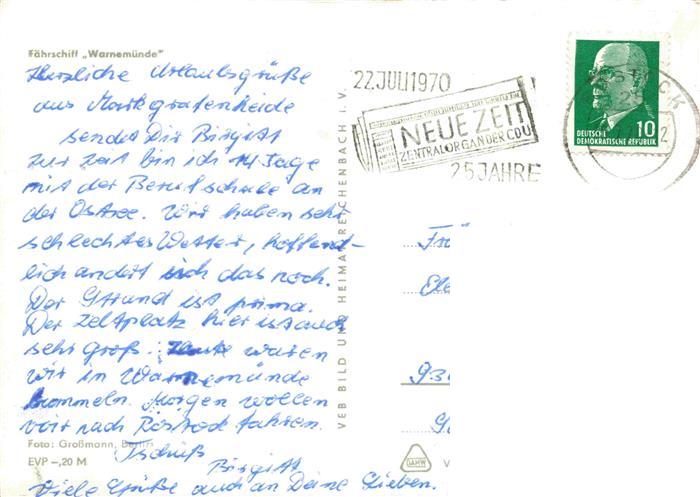 Fährschiff „Warnemünde"
Herzliche Urlaubsgrüße
aus Markgrafenheide
sendet Dir Birgitt
zur Zeit bin ich 14 Tage
mit der Berufsschule an
der Ostsee. Wir haben sehr
schlechtes Wetter, hoffend-
lich ändert sich das noch.
Der Strand ist prima.
Der Zeltplatz hier ist auch
sehr groß. Heute waren
wir in Warnemünde
bummeln. Morgen wollen
wir nach Rostock fahren.
Foto: Großmann, Berlin
Tschüß
EVP –,20 M
Birgitt
Viele Grüße auch an Deine Lieben.
VEB BILD UND HEIMAT REICHENBACH i. V.
22. JULI 1970
NEUE ZEIT
ZENTRALORGAN DER CDU
25 JAHRE
DEUTSCHE
DEMOKRATISCHE REPUBLIK
10